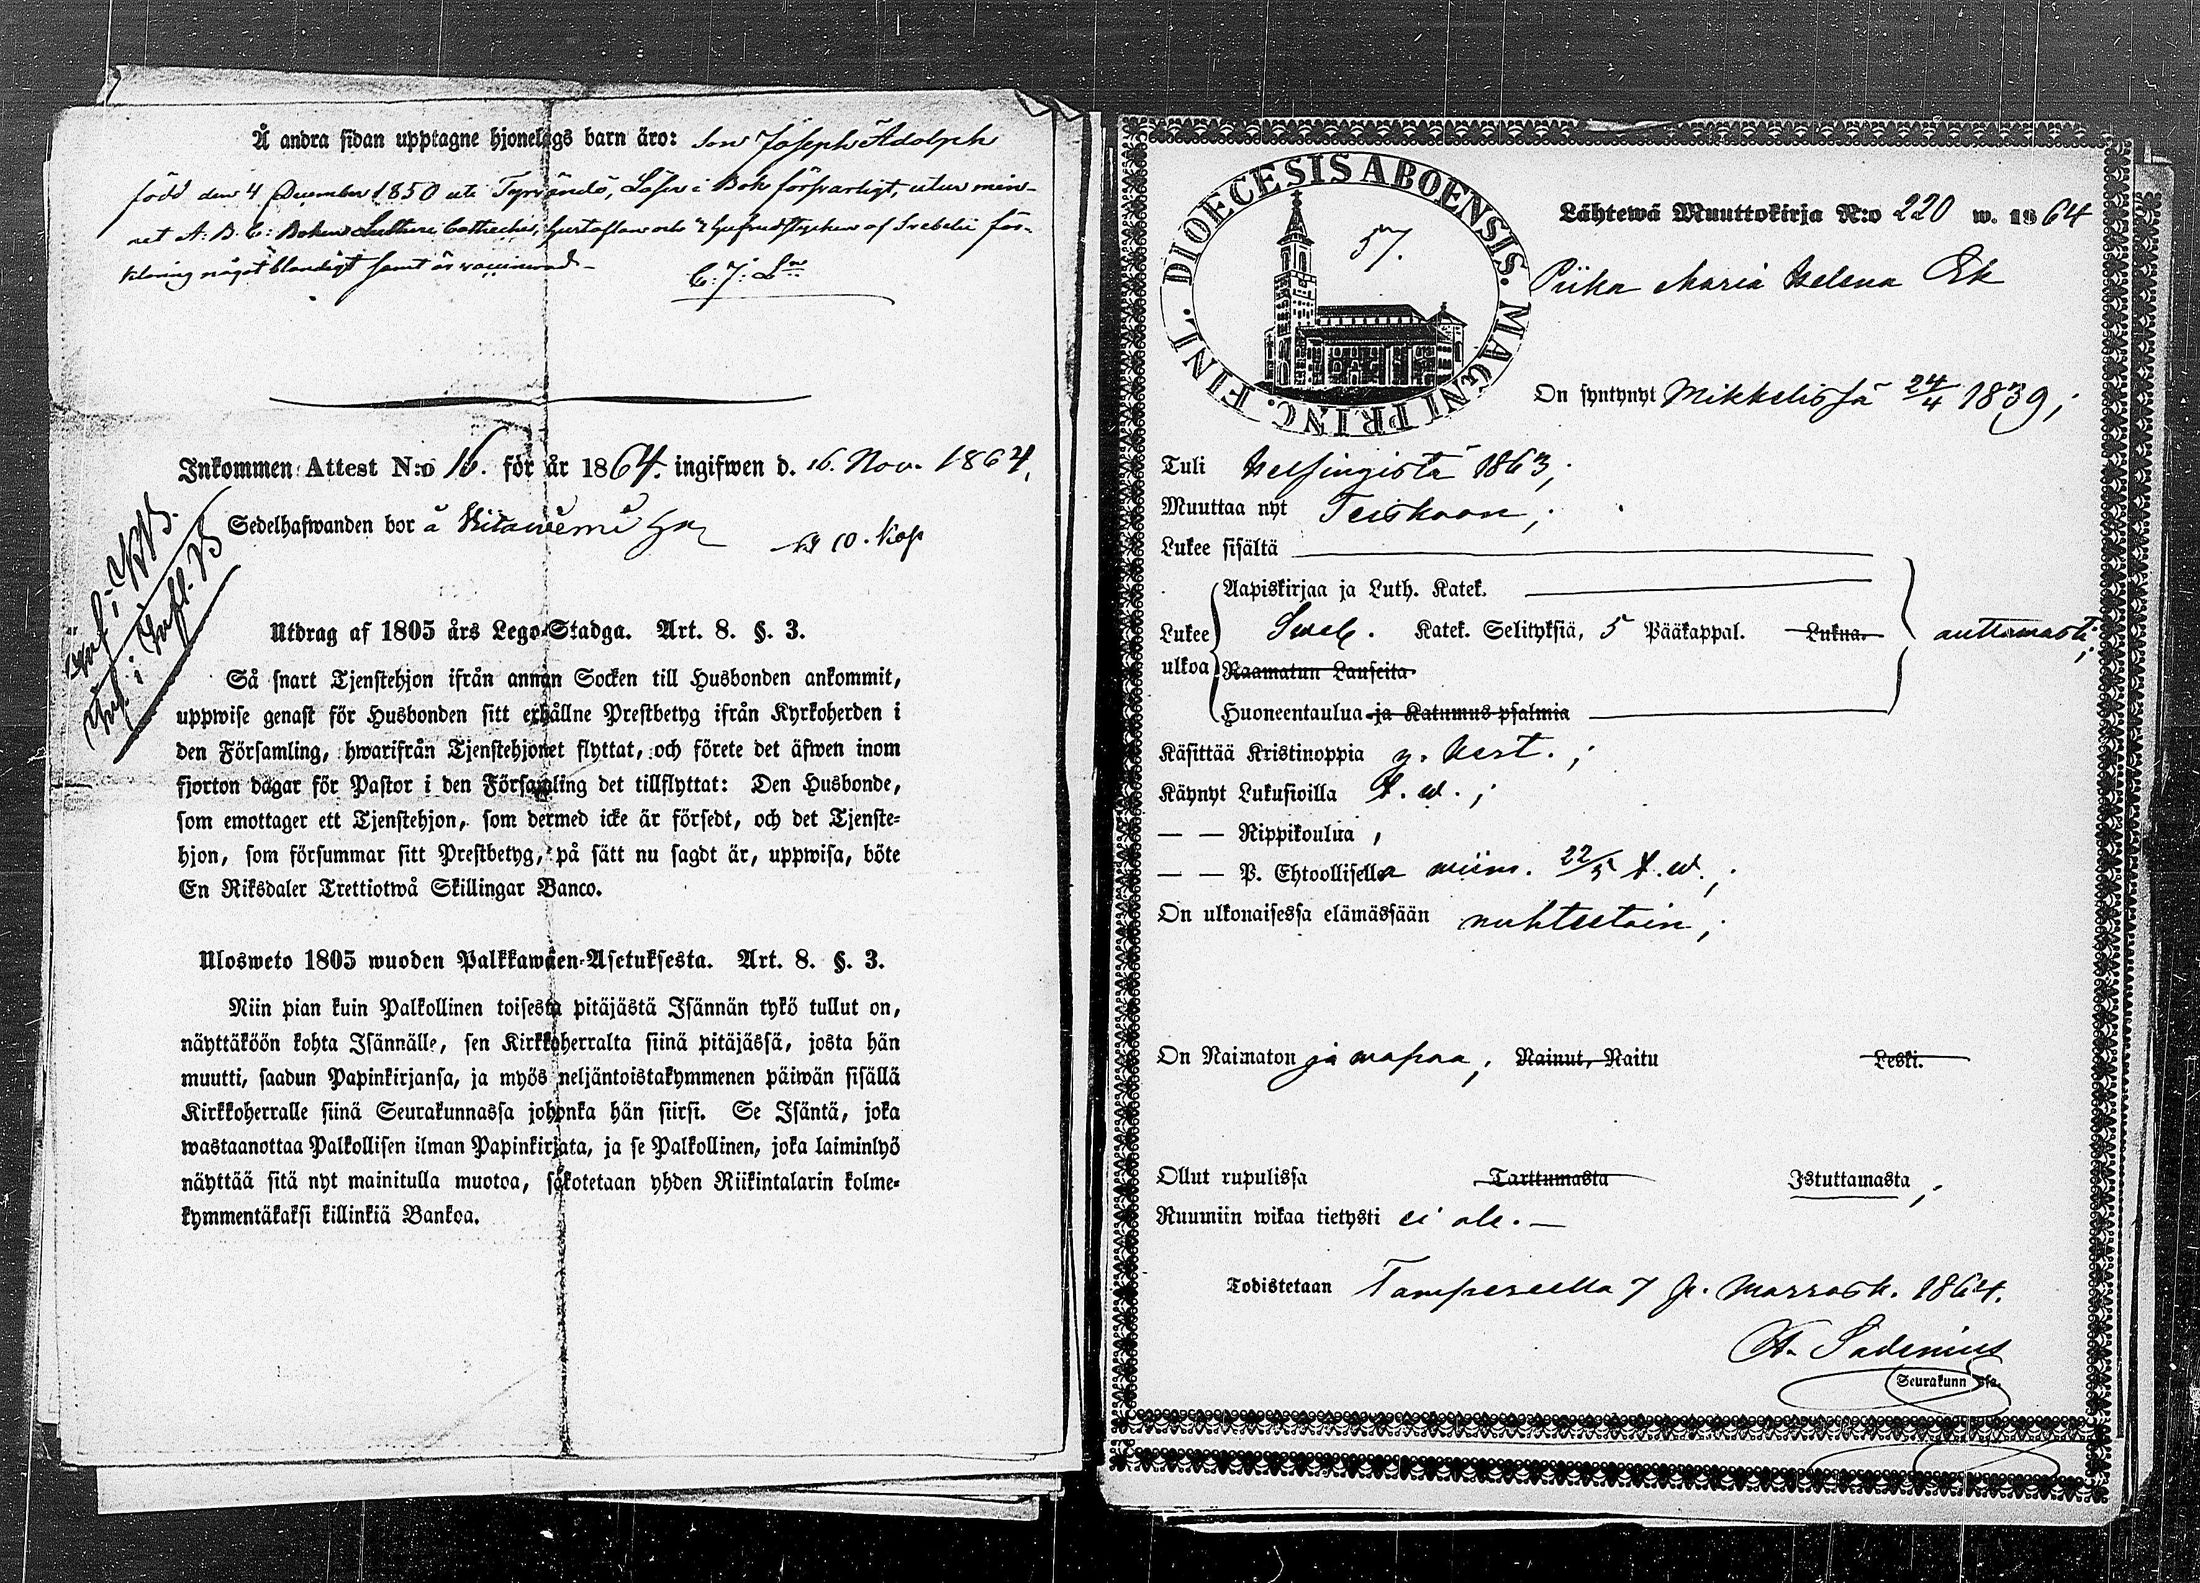 Å andra sidan upptagne hjonelags barn äro: son Joseph Adolph
född den 4 December 1850 uti Tyrvändö, Läser i Bok försvarligt, utur min-
net A: B. C: Boken Lutheri Catheches, Hustaflan och 2 Hufvudstycken af Svebelii för-
klaring något blandigt samt är vaccinerad.
C: J: Ln
Inkommen Attest N:o 16. för år 1864. ingifwen d. 16. Nov. 1864.
Sedelhafwanden bor å
10. Kop
Utdrag af 1805 års Lego-Stadga. Art. 8. §. 3.
Så snart Tjenstehjon ifrån annan Socken till Husbonden ankommit,
uppwise genast för Husbonden sitt erhållne Prestbetyg ifrån Kyrkoherden i
den Församling, hwarifrån Tjenstehjonet flyttat, och förete det äfwen inom
fjorton dagar för Pastor i den Församling det tillflyttat: Den Husbonde,
som emottager ett Tjenstehjon, som dermed icke är försedt, och det Tjenste-
hjon, som försummar sitt Prestbetyg, på sätt nu sagdt är, uppwisa, böte
En Riksdaler Trettiotwå Skillingar Banco.
Ulosweto 1805 wuoden Palkkawäen-Asetuksesta. Art. 8. §. 3.
Niin pian kuin Palkollinen toisesta pitäjästä Isännän tykö tullut on,
näyttäköön kohta Isännälle, sen Kirkkoherralta siinä pitäjässä, josta hän
muutti, saadun Papinkirjansa, ja myös neljäntoistakymmenen päiwän sisällä
Kirkkoherralle siinä Seurakunnassa johonka hän siirsi. Se Isäntä, joka
wastaanottaa Palkollisen ilman Papinkirjata, ja se Palkollinen, joka laiminlyö
näyttää sitä nyt mainitulla muotoa, sakotetaan yhden Riikintalarin kolme-
kymmentäkaksi killinkiä Bankoa.
DIOECESIS ABOENSIS. MAGNI PRINC. FINL.
57.
Lähtewä Muuttokirja N:o 220 w. 1864
Piika Maria Helena Ek
On syntynyt Mikkelissä 24/4 1839;
Tuli Helsingistä 1863;
Muuttaa nyt Teiskoon;
Lukee sisältä
Aapiskirjaa ja Luth. Katek.
Lukee Sveb. Katek. Selityksiä, 5 Pääkappal. Lukua. auttavasti;
ulkoa Raamatun Lauseita
Huoneentaulua ja Katumus-psalmia
Käsittää Kristinoppia y. kert.;
Käynyt Lukusioilla t. w.;
— — Rippikoulua,
— — P. Ehtoollisella wiim. 22/5 t. w.;
On ulkonaisessa elämässään nuhteetoin;
On Naimaton ja wapaa; Nainut, Naitu Leski.
Ollut rupulissa Tarttumasta Istuttamasta;
Ruumiin wikaa tietysti ei ole. —
Todistetaan Tampereella 7 p. Marrask. 1864.
A. Sadenius
Seurakunn ssa.